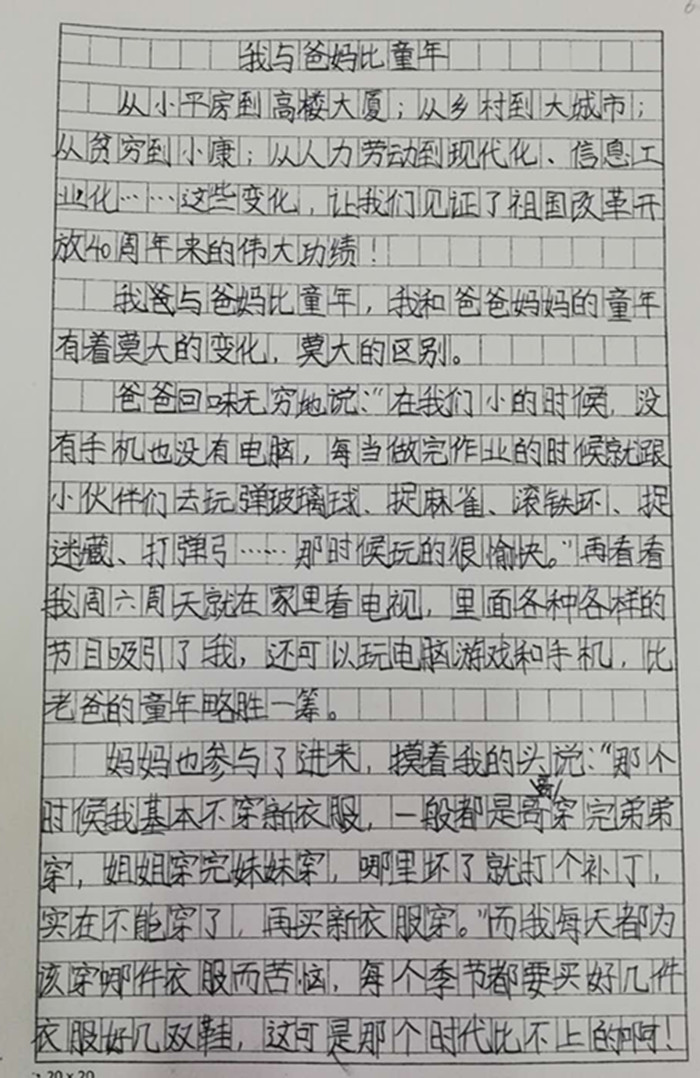 我与爸妈比童年
从小平房到高楼大厦；从乡村到大城市；
从贫穷到小康；从人力劳动到现代化、信息工
业化……这些变化，让我们见证了祖国改革开
放40周年来的伟大功绩！
我爸与爸妈比童年，我和爸爸妈妈的童年
有着莫大的变化，莫大的区别。
爸爸回味无穷地说：“在我们小的时候，没
有手机也没有电脑，每当做完作业的时候就跟
小伙伴们去玩弹玻璃球、捉麻雀、滚铁环、捉
迷藏、打弹弓……那时候玩的很愉快。”再看看
我周六周天就在家里看电视，里面各种各样的
节目吸引了我，还可以玩电脑游戏和手机，比
老爸的童年略胜一筹。
妈妈也参与了进来，摸着我的头说：“那个
时候我基本不穿新衣服，一般都是哥哥穿完弟弟
穿，姐姐穿完妹妹穿，哪里坏了就打个补丁，
实在不能穿了，再买新衣服穿。”而我每天都为
该穿哪件衣服而苦恼，每个季节都要买好几件
衣服好几双鞋，这可是那个时代比不上的啊！
20×20